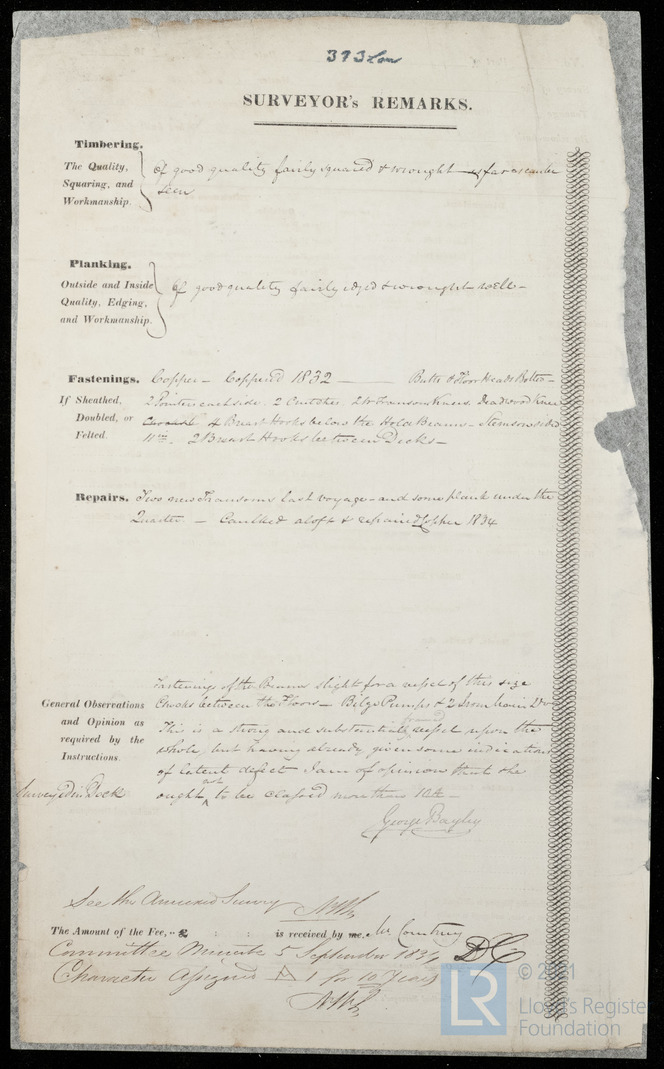 373 Lon
SURVEYOR's REMARKS.
Timbering.
The Quality, Squaring, and Workmanship.
Of good quality fairly squared & wrought as far as can be
seen
Planking.
Outside and Inside Quality, Edging, and Workmanship.
Of good quality fairly edged & wrought well -
Fastenings. Copper - Coppered 1832 - Butts & Floor Heads Bolted -
If Sheathed, Doubled, or Felted.
2 Pointers each side. 2 Crutches. 2 Transom Knees. Deadwood Knee
4 Breast Hooks below the Hold Beams - Stemson sided
11 in. 2 Breast Hooks between Decks -
Repairs. Two new Transoms last voyage - and some plank under the
Quarter. - Caulked aloft & repaired Copper 1834
General Observations and Opinion as required by the Instructions.
Fastenings of the Beams slight for a vessel of this size
Chocks between the Floors - Bilge Pumps & 2 Iron
This is a strong and substantially vessel upon the
whole, but having already given some indications
of latent defect I am of opinion that she
ought not to be classed more than 10A -
Surveyed in Dock
George Bayley
See the Annexed Survey
The Amount of the Fee, is received by me, Mr Courtney
Committee Minute 5 September 1834 DC
Character Assigned A 1 for 10 Years
LR
© 2021
Lloyd's Register
Foundation